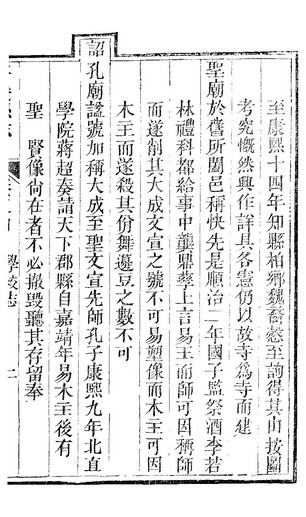 至康熙十四年知縣柏鄉魏裔慤至詢得其由按圖
考究慨然興作詳具各憲仍以故寺爲寺而建
聖廟於舊所闔邑稱快先是順治二年國子監祭酒李若
林禮科都給事中龔鼎孳上言易王而師可因稱師
而遂削其大成文宣之號不可易塑像而木主可因
木主而遂殺其佾舞籩豆之數不可
詔孔廟謚號加稱大成至聖文宣先師孔子康熙九年北直
學院蔣超奏請天下郡縣自嘉靖年易木主後有
聖賢像尙在者不必撤毁聽其存留奉
學校志